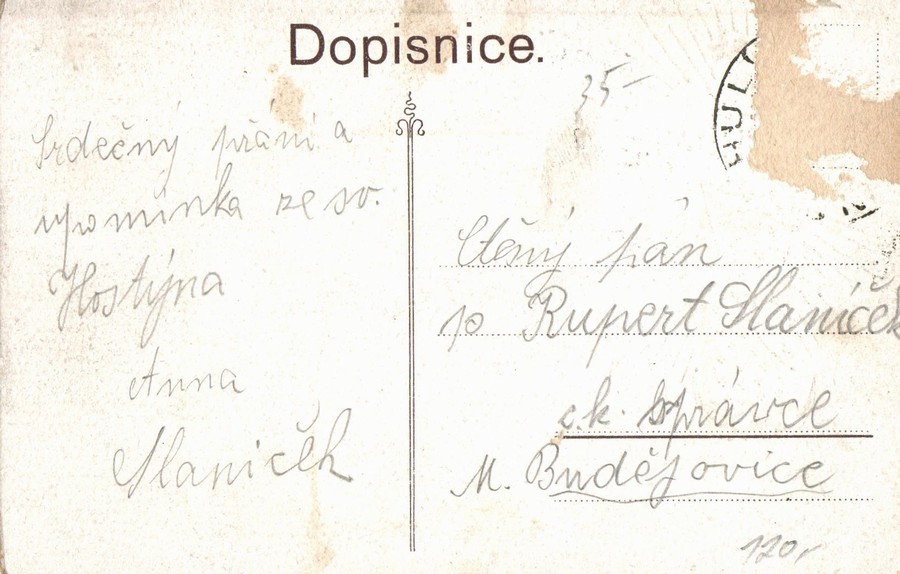 Dopisnice.
35-
HUL
Srdečný přání a
upomínka ze sv.
Hostýna
Anna
Slaniček
Ctěný pán
p Rupert Slaníček
c.k. správce
M. Budějovice
120,